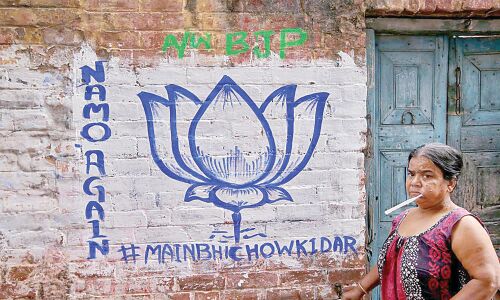 N/W BJP
NAMO AGAIN
#MAINBHICHOWKIDAR